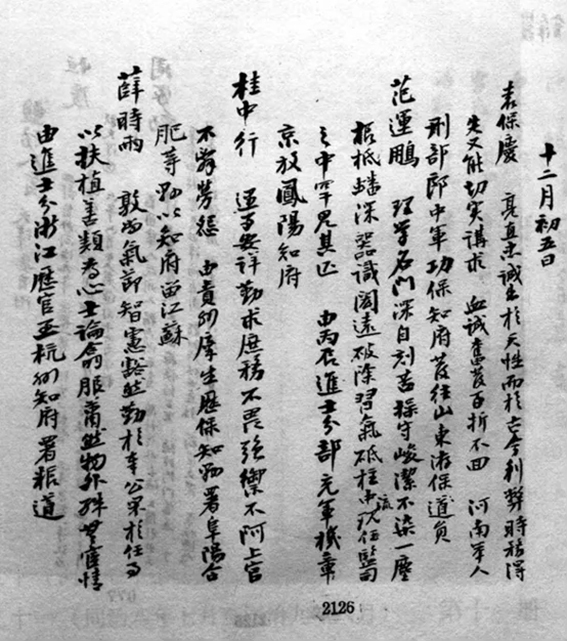 十二月初五日
袁保慶 亮直忠誠出於天性而於古今利弊時務得
失又能切實講求 血誠奮發百折不回 河南舉人
刑部郎中軍功保知府發往山東游保道員
范運鵬 理學名門深自刻苦操守峻潔不染一塵
根柢蟠深器識閎遠破除習氣砥柱中流現任監司
之中罕見其匹 由丙辰進士分部充軍機章
京放鳳陽知府
桂中行 遇事安詳勤求庶務不畏強禦不阿上官
不辭勞怨 由貴州庠生歷保知縣署阜陽合
肥等縣以知府留江蘇
薛時雨 敦尚氣節智慮豁然勤於奉公果於任事
以扶植善類為心士論翕服蕭然物外殊無宦情
由進士分浙江歷官至杭州知府署糧道
2126